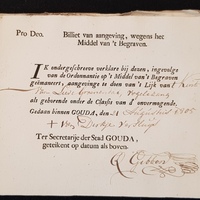 Pro Deo. Billiet van aangeving, wegens het
Middel van 't Begraven.
IK ondergeschreeve verklare bij dezen, ingevolge
van de Ordonnantie op 't Middel van't Begraven
geëmaneert, aangevinge te doen van 't Lijk van't Kind
van
als gehorende onder de Classis van d' onvermogende.
Gedaan binnen GOUDA, den 21 Augustus 1805
Ter Secretarije der Stad GOUDA,
geteikent op datum als boven.